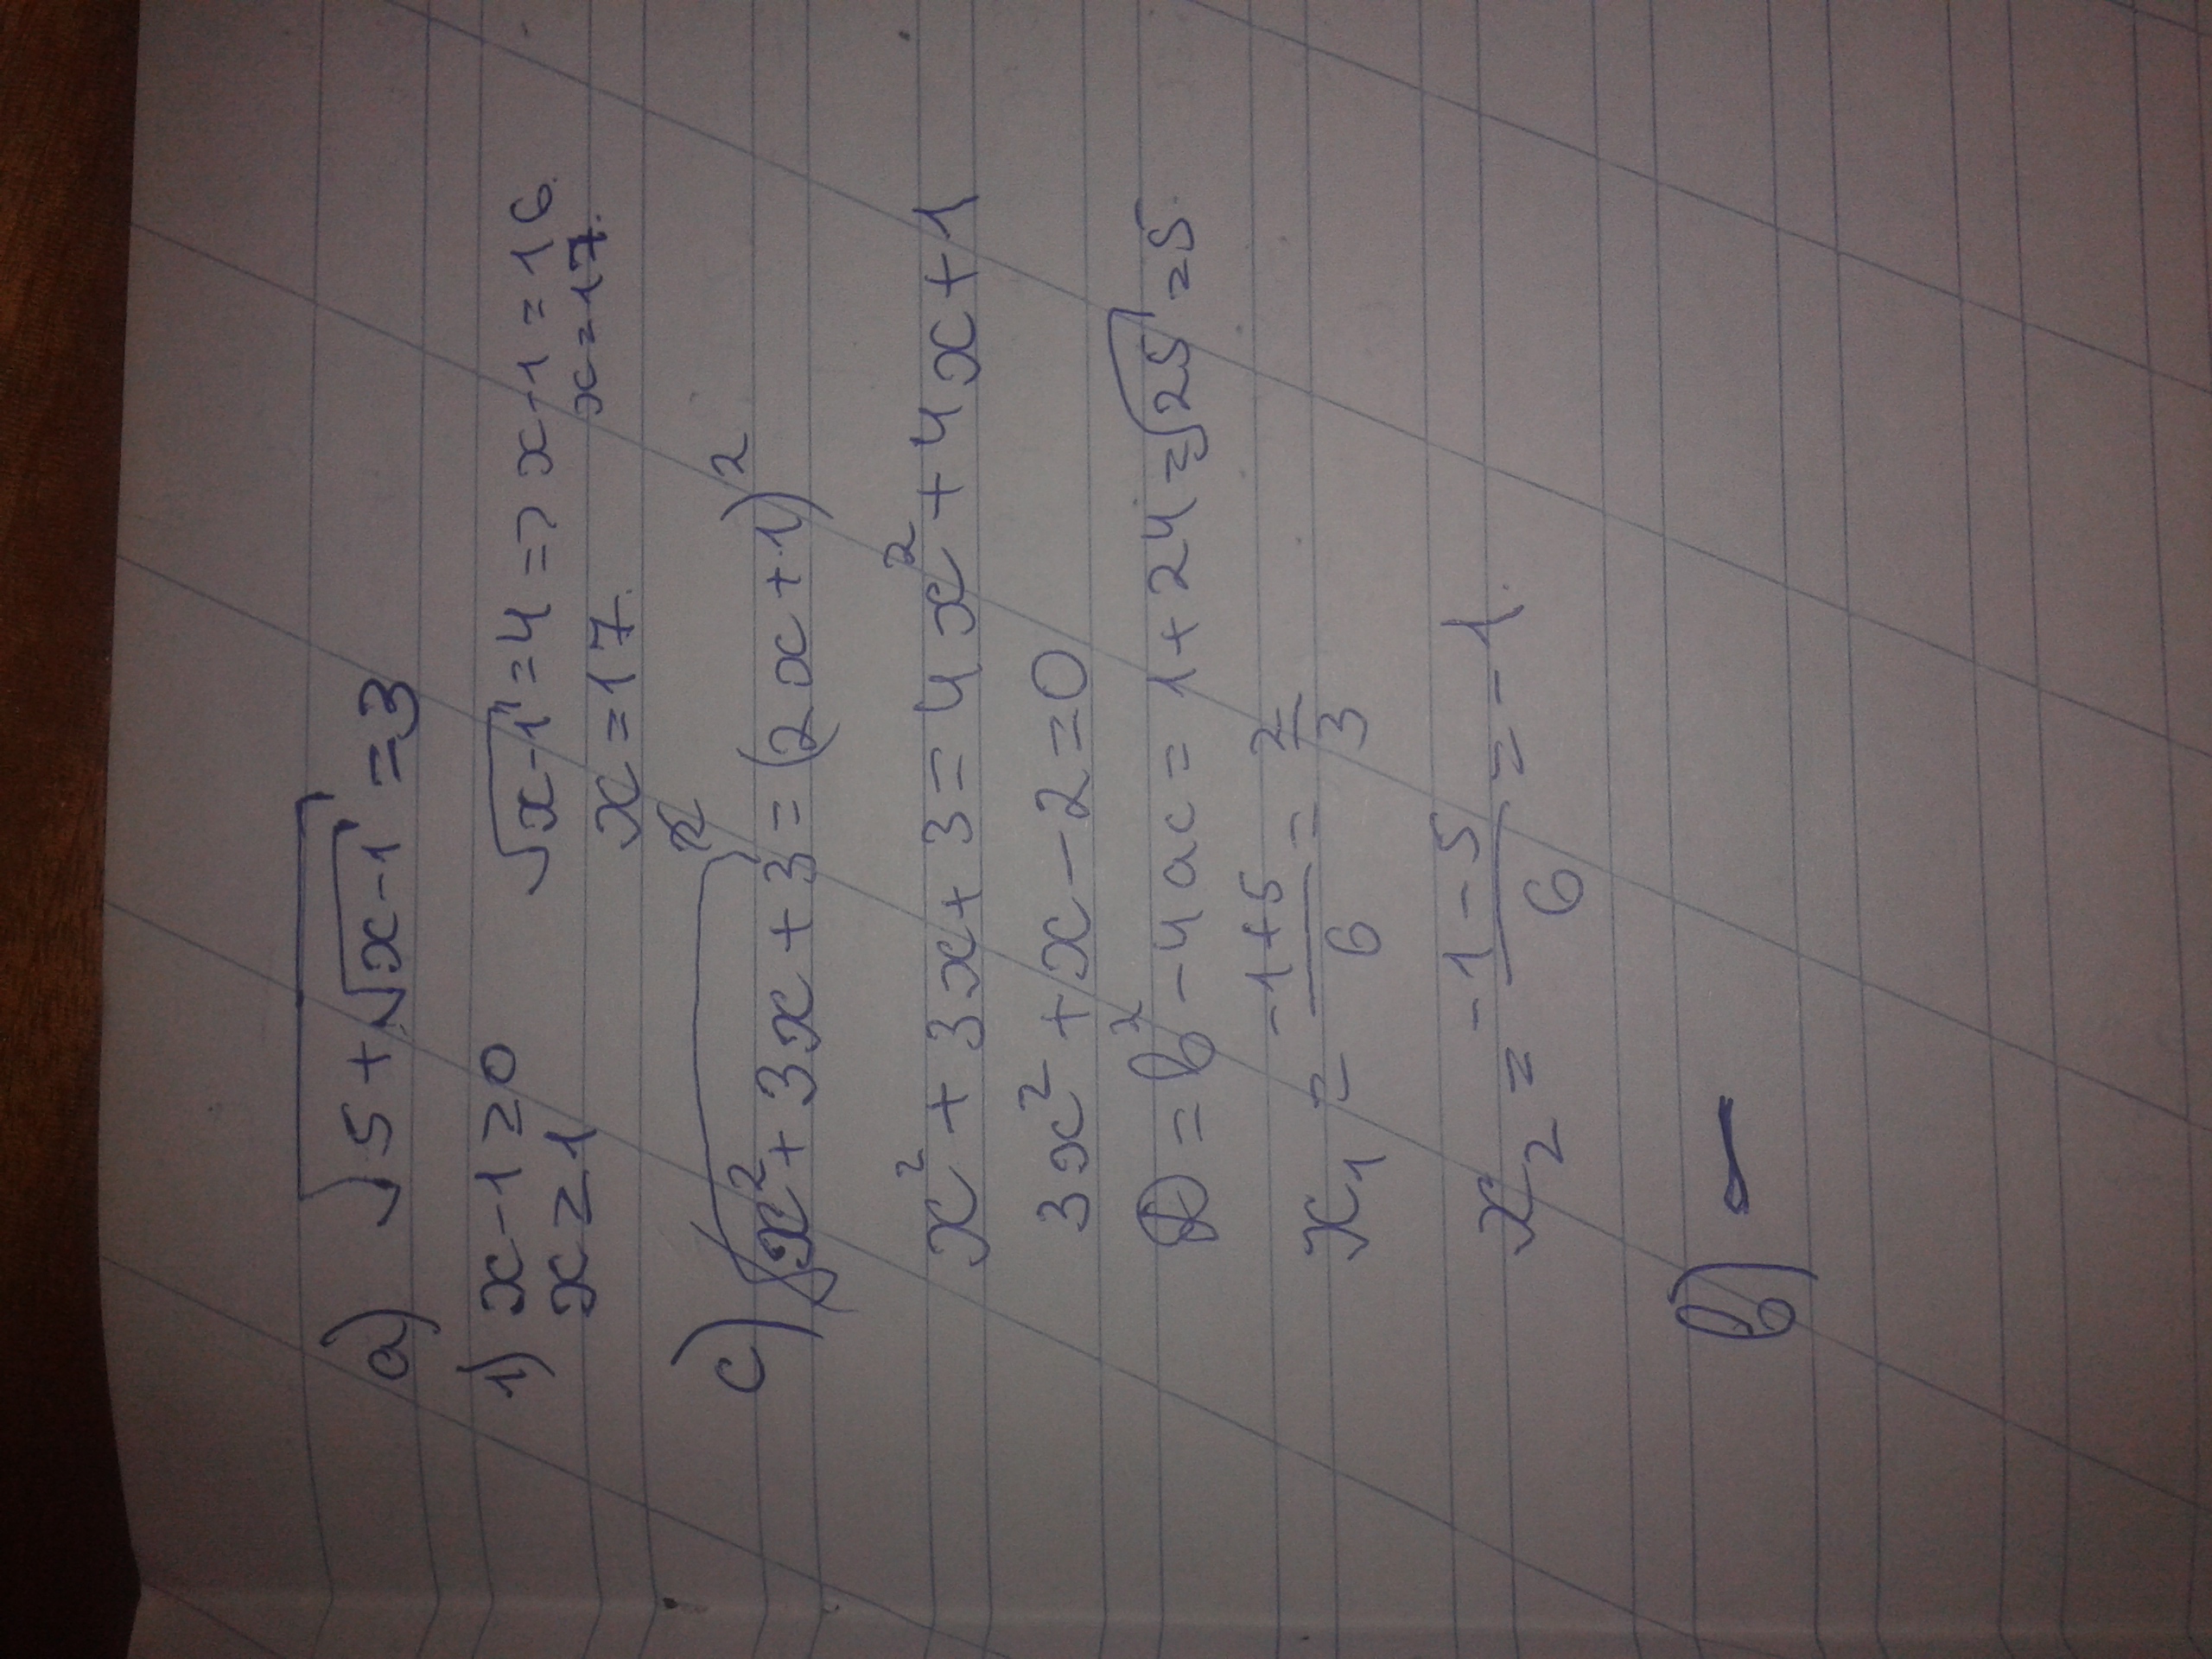 a) √(5+√(x-1)) = 3
1) x-1≥0 √(x-1) = 4 => x-1=16.
x≥1 x=17. x=17.
c) x²+3x+3=(2x+1)²
x²+3x+3=4x²+4x+1
3x²+x-2=0
D=b²-4ac=1+24=√25=5.
x₁=(-1+5)/6=2/3
x₂=(-1-5)/6=-1.
b)